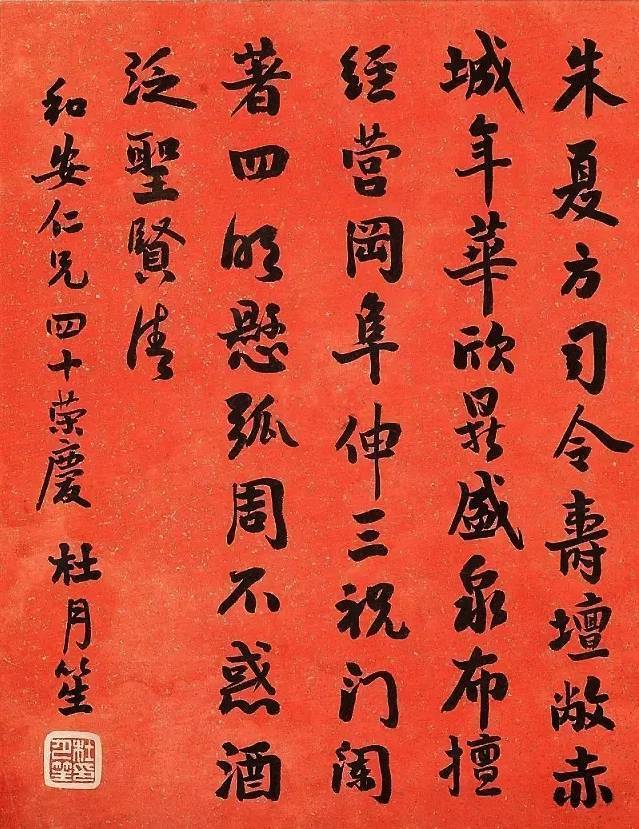 朱夏方司令壽壇敞赤
城年華欣鼎盛泉布擅
經营岡阜伸三祝门闌
著四明懸弧周不惑酒
泛聖賢清
和安仁兄四十荣慶 杜月笙
杜印月笙